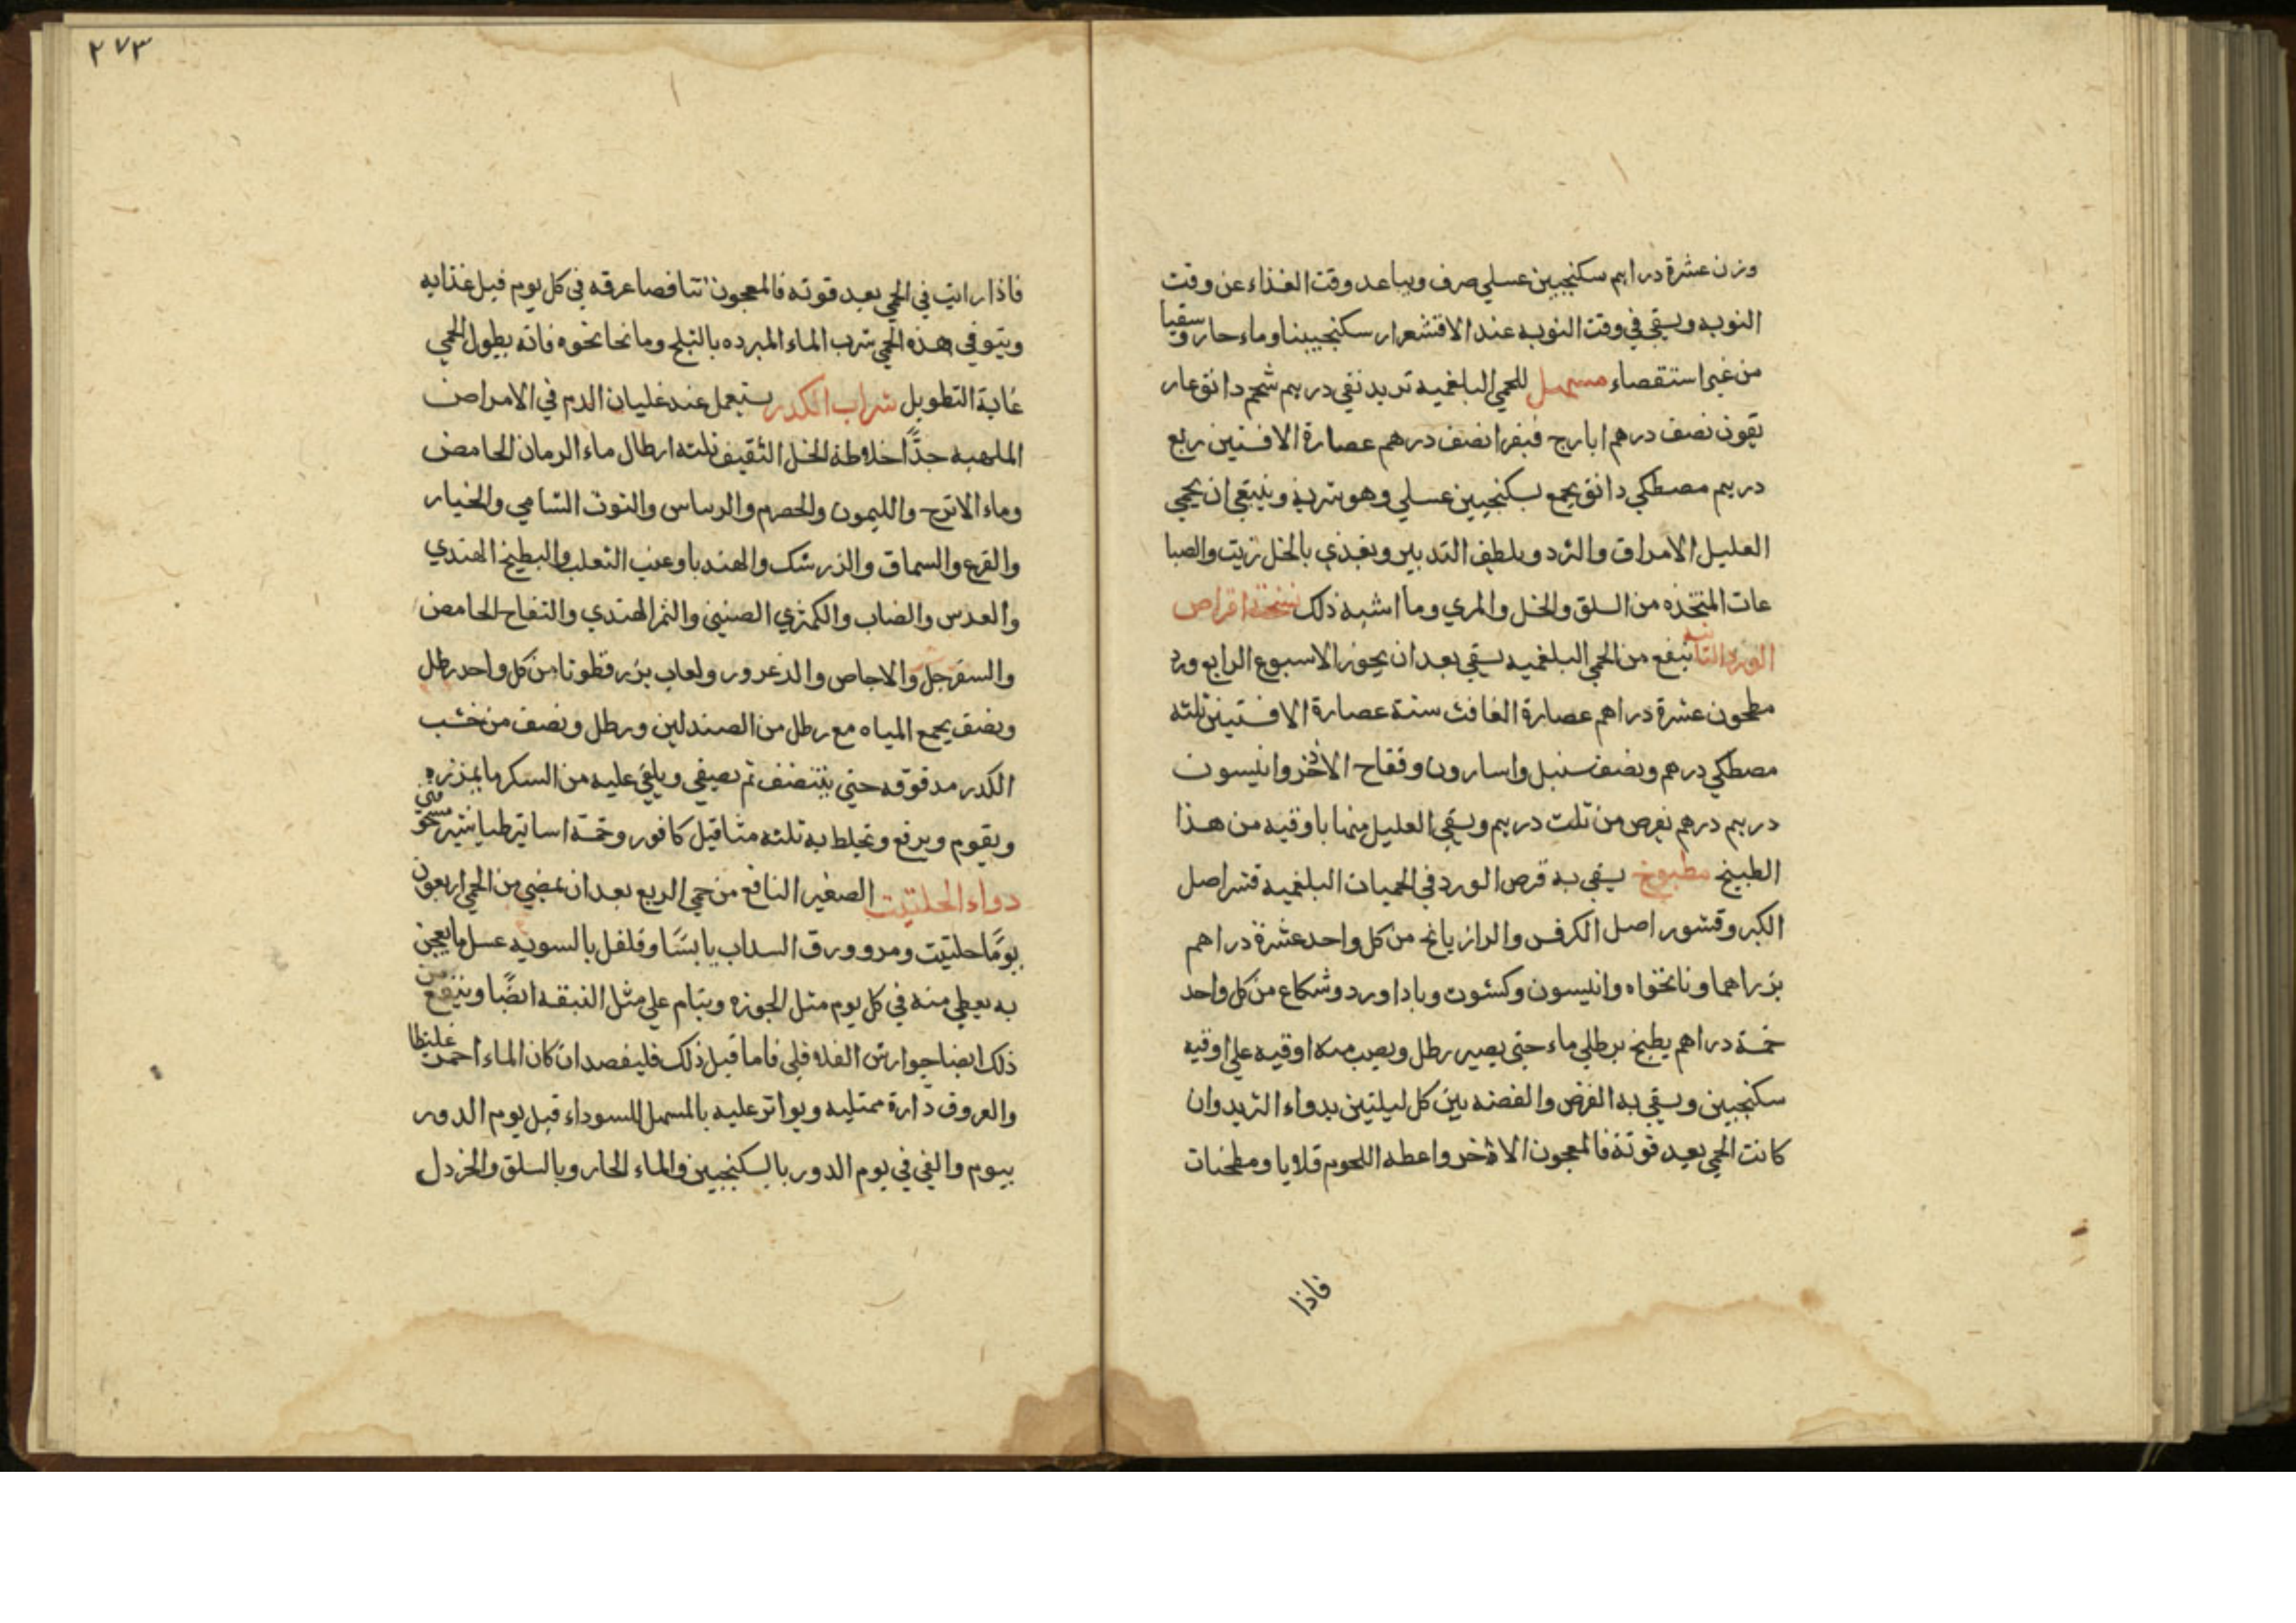 وزن عشرة دراهم سكنجبين عسلي صرف ويباعد وقت الغذاء عن وقت
النوبه ويسقي في وقت النوبه عند الاقشعرار سكنجبينا وماء حار وسقيا
من غير استقصاء مسهل للحمي البلغميه تربد نقي درهم شحم دانق غار
يقون نصف درهم ايارج فيقرا نصف درهم عصارة الافسنتين ربع
درهم مصطكي دانق يجمع بسكنجبين عسلي وهو شربة وينبغي ان يحمي
العليل الامراق والثرد ويلطف التدبير ويغذي بالخل زيت والصبا
غات المتخذه من السلق والخل والمري وما اشبه ذلك نسخة اقراص
الورد التي تنفع من الحمي البلغميه يسقي بعد ان يجوز الاسبوع الرابع ورد
مطحون عشرة دراهم عصارة الغافث ستة عصارة الافسنتين ثلثه
مصطكي درهم ونصف سنبل واسارون وفقاح الاذخر وانيسون
درهم درهم يقرص من ثلث درهم ويسقي العليل منها باوقيه من هذا
الطبيخ مطبوخ يسقي به قرص الورد في الحميات البلغميه قشر اصل
الكبر وقشور اصل الكرفس والرازيانج من كل واحد عشرة دراهم
بزراهما ونانخواه وانيسون وكشوت وباداورد وشكاع من كل واحد
خمسة دراهم يطبخ برطلي ماء حتي يصير رطل ويصب منه اوقيه علي اوقيه
سكنجبين ويسقي به القرص والفضه بين كل ليلتين بدواء التربد وان
كانت الحمي بعيد قوتة فالمعجون الاذخر واعطه اللحوم قلايا ومطجنات
فاذا
٢٧٣
فاذا رايت في الحمي بعد قوته فالمعجون تناقصا عرقه في كل يوم قبل غذايه
ويتوقي هذه الحمي شرب الماء المبرده بالثلج وما نحا نحوه فانه يطول الحمي
غاية التطويل شراب الكدر يستعمل عند غليان الدم في الامراض
الملهبه جدًّا اخلاطه الخل الثقيف ثلثه ارطال ماء الرمان الحامض
وماء الاترج والليمون والحصرم والريباس والتوت الشامي والخيار
والقرع والسماق والزرشك والهندبا وعنب الثعلب والبطيخ الهندي
والعدس والضاب والكمثري الصيني والثمر الهندي والتفاح الحامض
والسفرجل والاجاص والدعرور ولعاب بزر قطونا من كل واحد رطل
ونصف يجمع المياه مع رطل من الصندلين ورطل ونصف من خشب
الكدر مدقوقه حتي ينتصف ثم يصفي ويلقي عليه من السكر ما يمززه
ويقوم ويرفع ويخلط به ثلثه مثاقيل كافور وخمسة اساتير طباشير مسحوق
دواء الحلتيت الصغير النافع من حمي الربع بعد ان يمضي من الحمي اربعون
يومًا حلتيت ومر وورق السداب يابسًا وفلفل بالسويه عسل ما يعجن
به يعطي منه في كل يوم مثل الجوزه وينام علي مثل النبقه ايضًا وينفع من
ذلك ايضا جوارش الفلافلي فاما قبل ذلك فليفصد ان كان الماء احمر غليظا
والعروق دارة ممتليه ويواتر عليه بالمسهل للسوداء قبل يوم الدور
بيوم والقي في يوم الدور بالسكنجبين والماء الحار وبالسلق والخردل